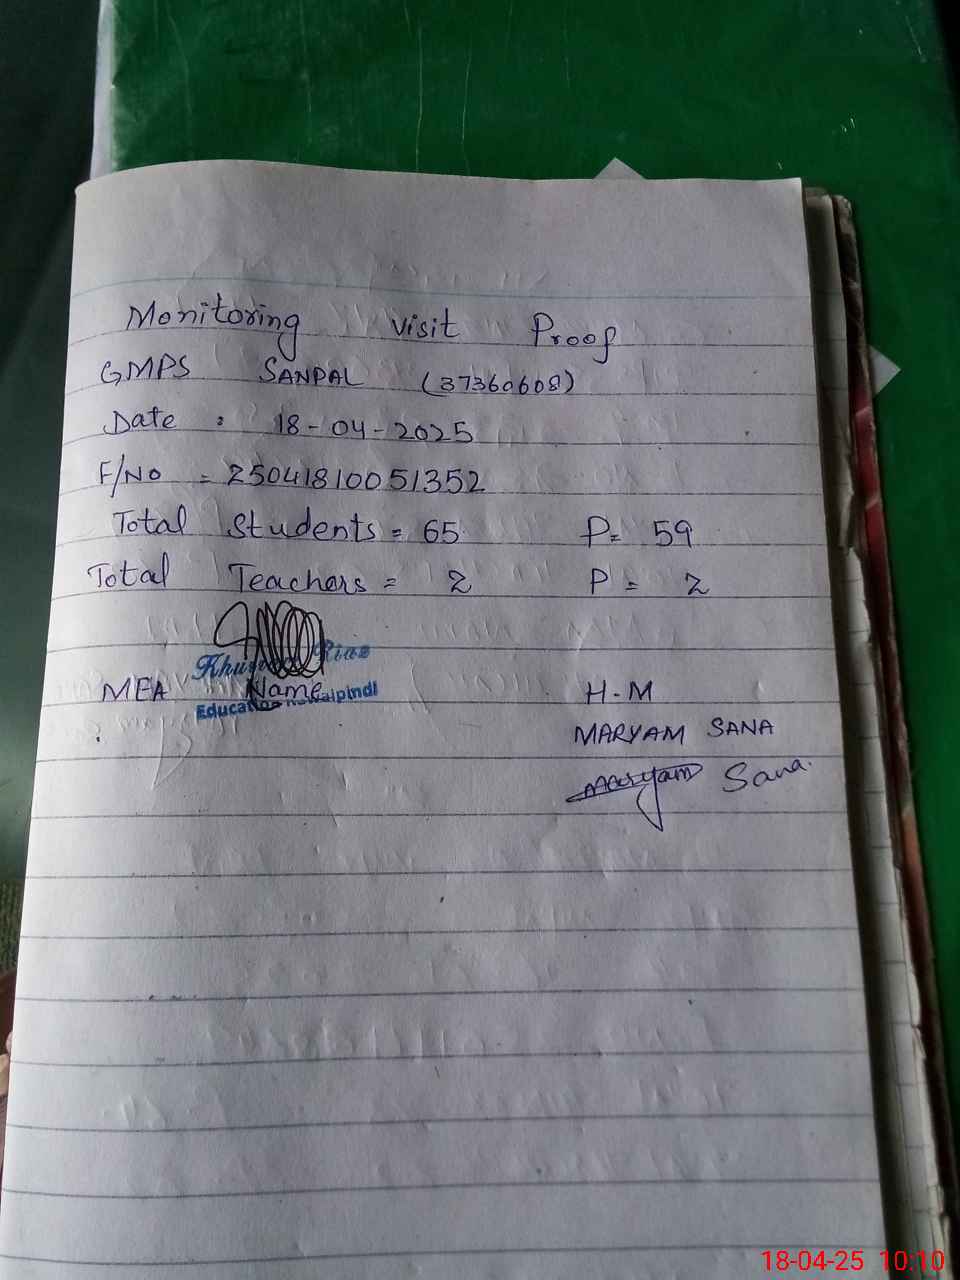 Monitoring visit Proof
GMPS SANPAL (37360608)
Date : 18-04-2025
F/No = 25041810051352
Total Students = 65 P= 59
Total Teachers = 2 P = 2
Riaz
MEA Name H-M
Education Rawalpindi
MARYAM SANA
Maryam Sana.
18-04-25 10:10